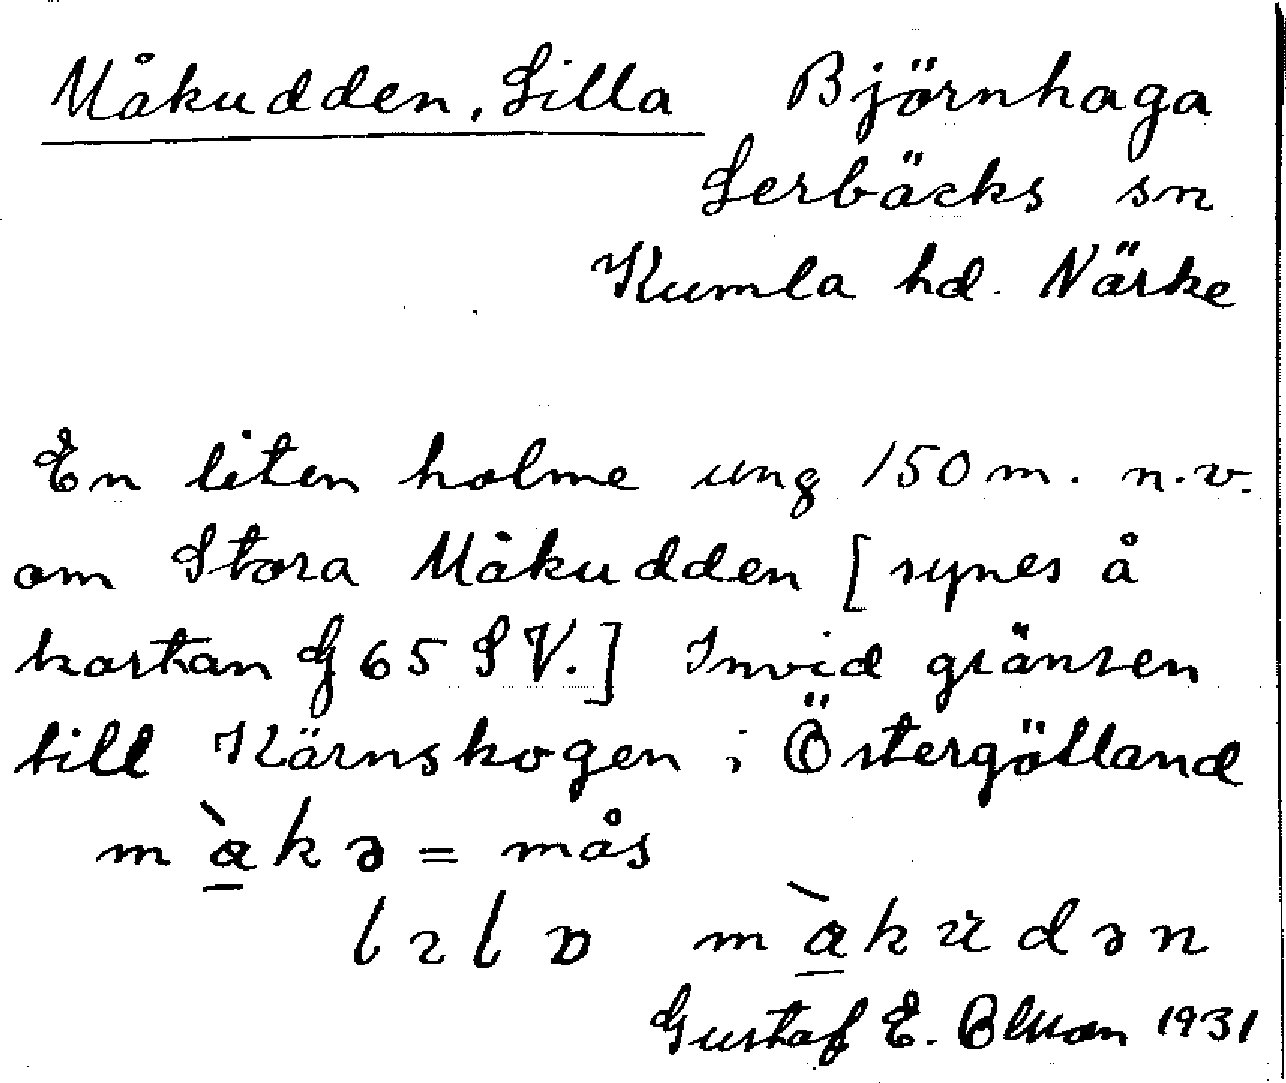 Måkudden, Lilla Björnhaga
Lerbäcks sn
Kumla hd. Närke
En liten holme ung 150 m. n.v.
om Stora Måkudden [synes å
kartan G 65 SV.] Invid gränsen
till Kärnskogen i Östergötland
m a k ə = mås
m a k u d ə n
Gustaf E. 1931